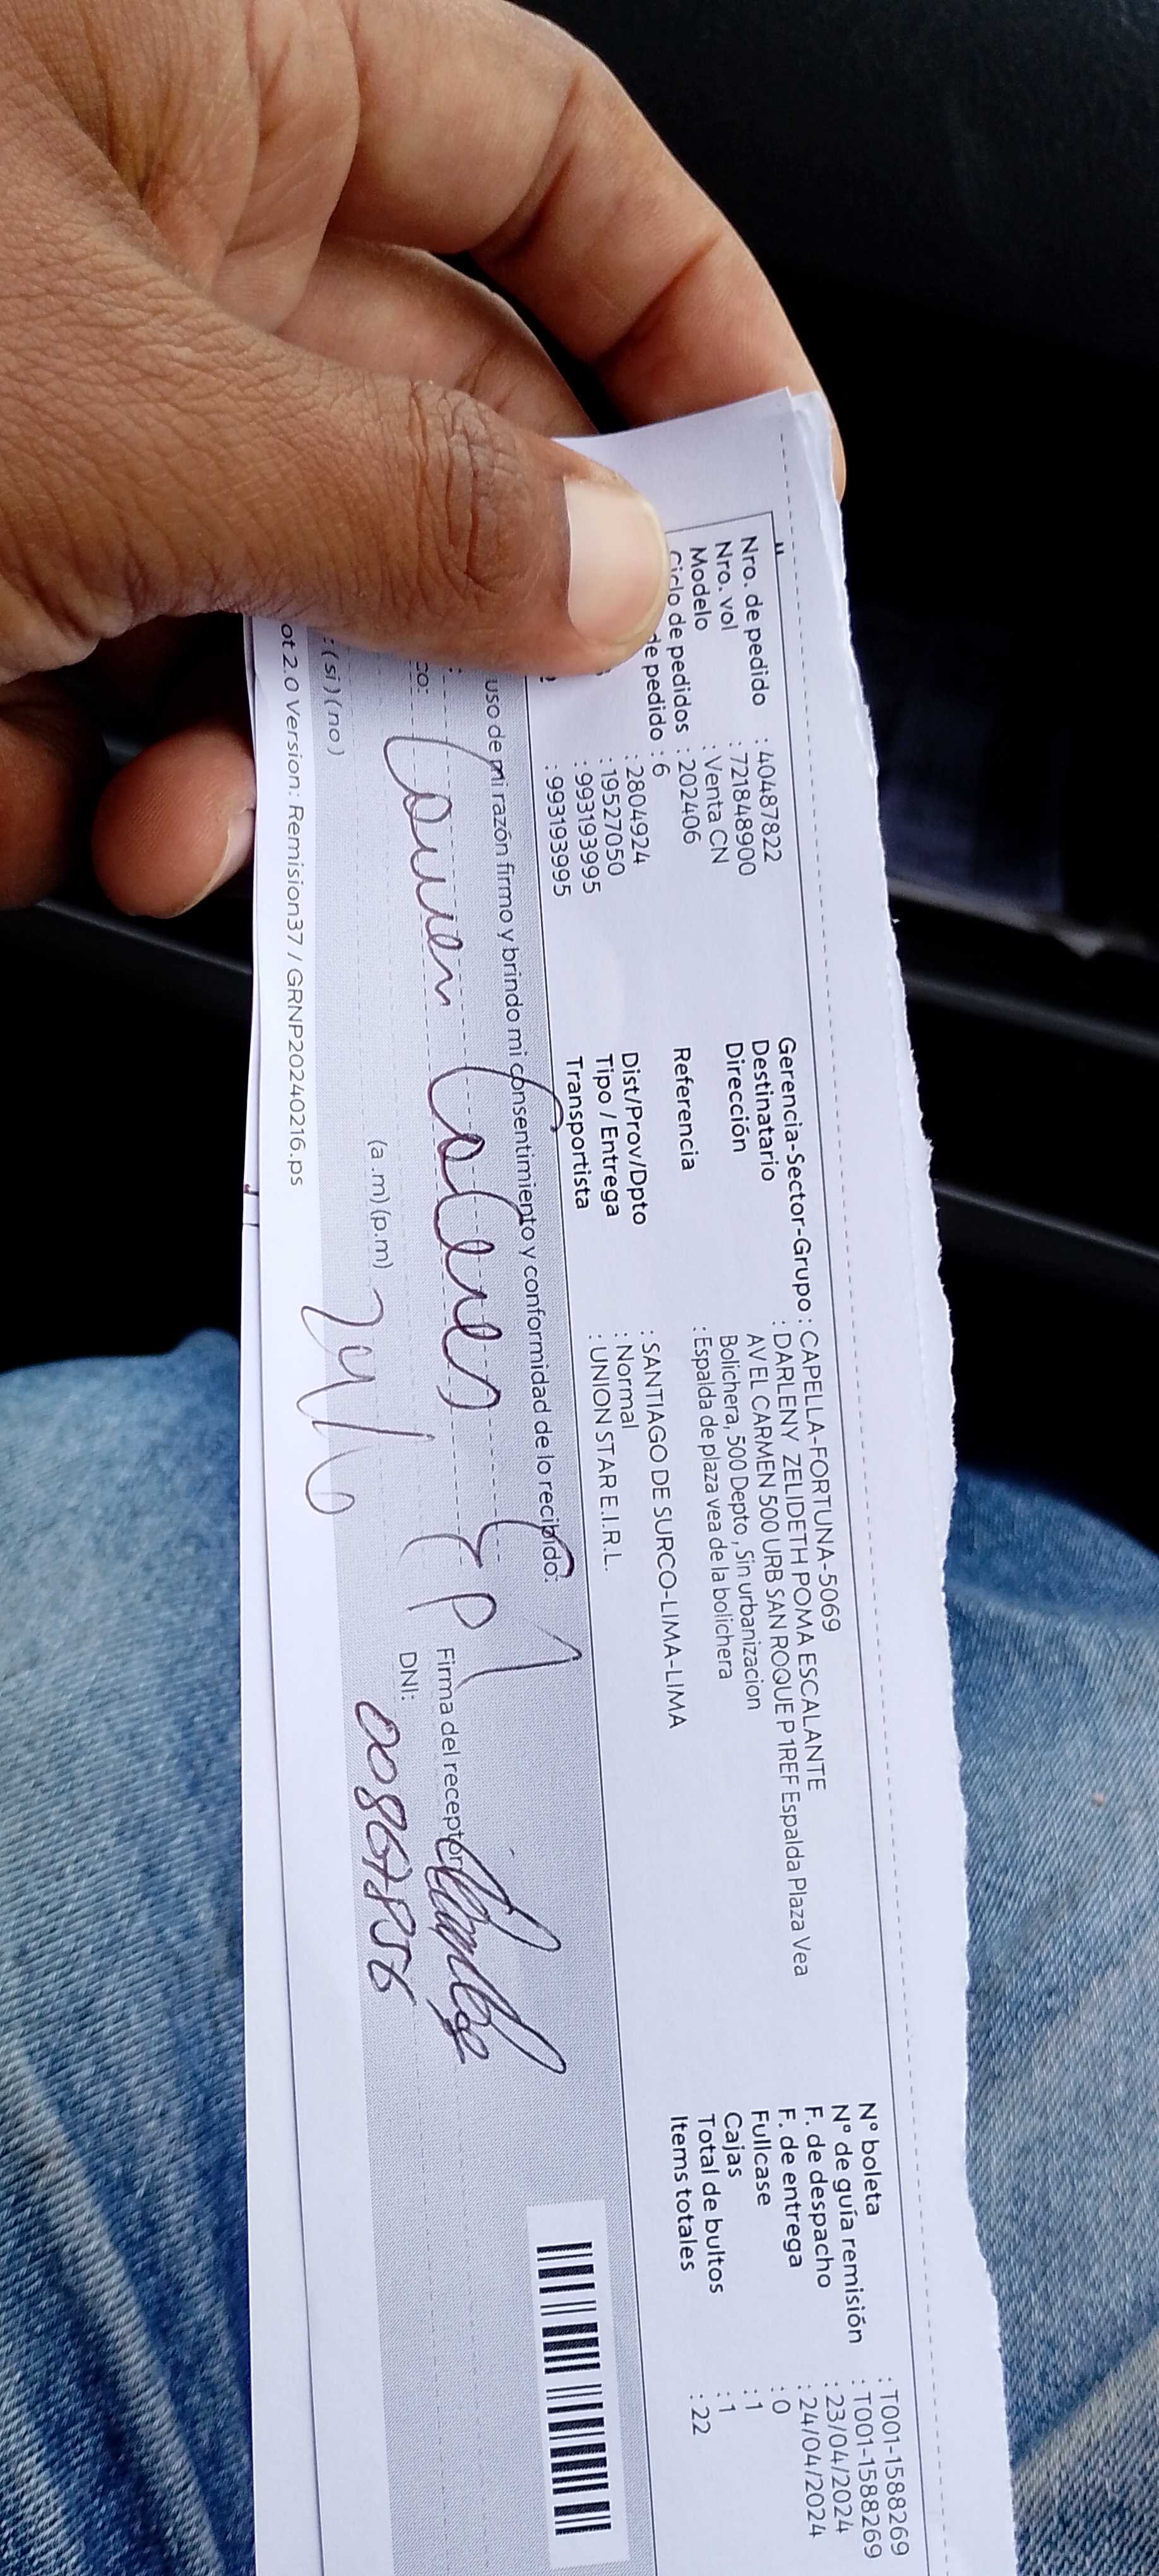 Nro. de pedido : 40487822
Nro. vol : 721848900
Modelo : Venta CN
Ciclo de pedidos : 202406
de pedido : 6
: 2804924
: 19527050
: 993193995
: 993193995
Gerencia-Sector-Grupo : CAPELLA-FORTUNA-5069
Destinatario : DARLENY ZELIDETH POMA ESCALANTE
Dirección AV EL CARMEN 500 URB SAN ROQUE P 1REF Espalda Plaza Vea
Bolichera, 500 Depto , Sin urbanizacion
Referencia : Espalda de plaza vea de la bolichera
Dist/Prov/Dpto : SANTIAGO DE SURCO-LIMA-LIMA
Tipo / Entrega : Normal
Transportista : UNION STAR E.I.R.L.
N° boleta : T001-1588269
N° de guía remisión : T001-1588269
F. de despacho : 23/04/2024
F. de entrega : 24/04/2024
Fullcase : 0
Cajas : 1
Total de bultos : 1
Items totales : 22
uso de mi razón firmo y brindo mi consentimiento y conformidad de lo recibido:
Firma del receptor
co: (a .m) (p.m) DNI: 008678556
: ( si ) ( no )
ot 2.0 Version: Remision37 / GRNP20240216.ps